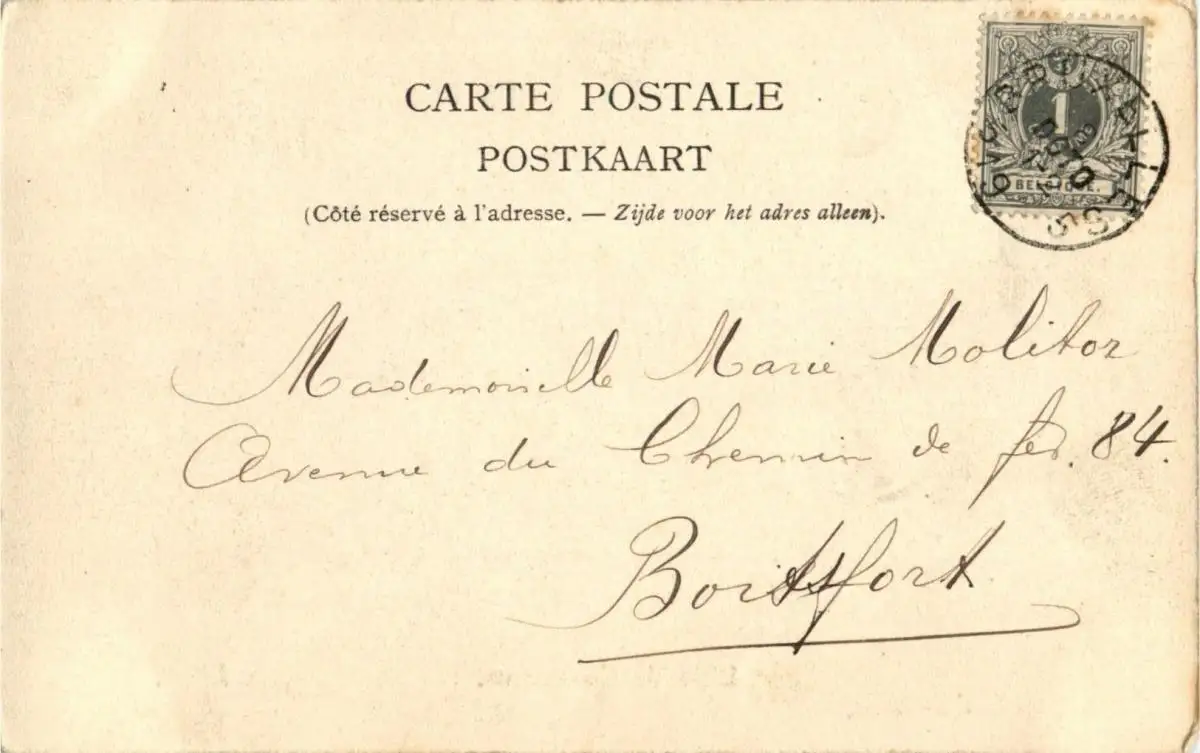 CARTE POSTALE
POSTKAART
(Côté réservé à l'adresse. — Zijde voor het adres alleen).
1
BELGIQUE.
BRUXELLES
Mademoiselle Marie Molitor
Avenue du Chemin de fer. 84.
Boitsfort